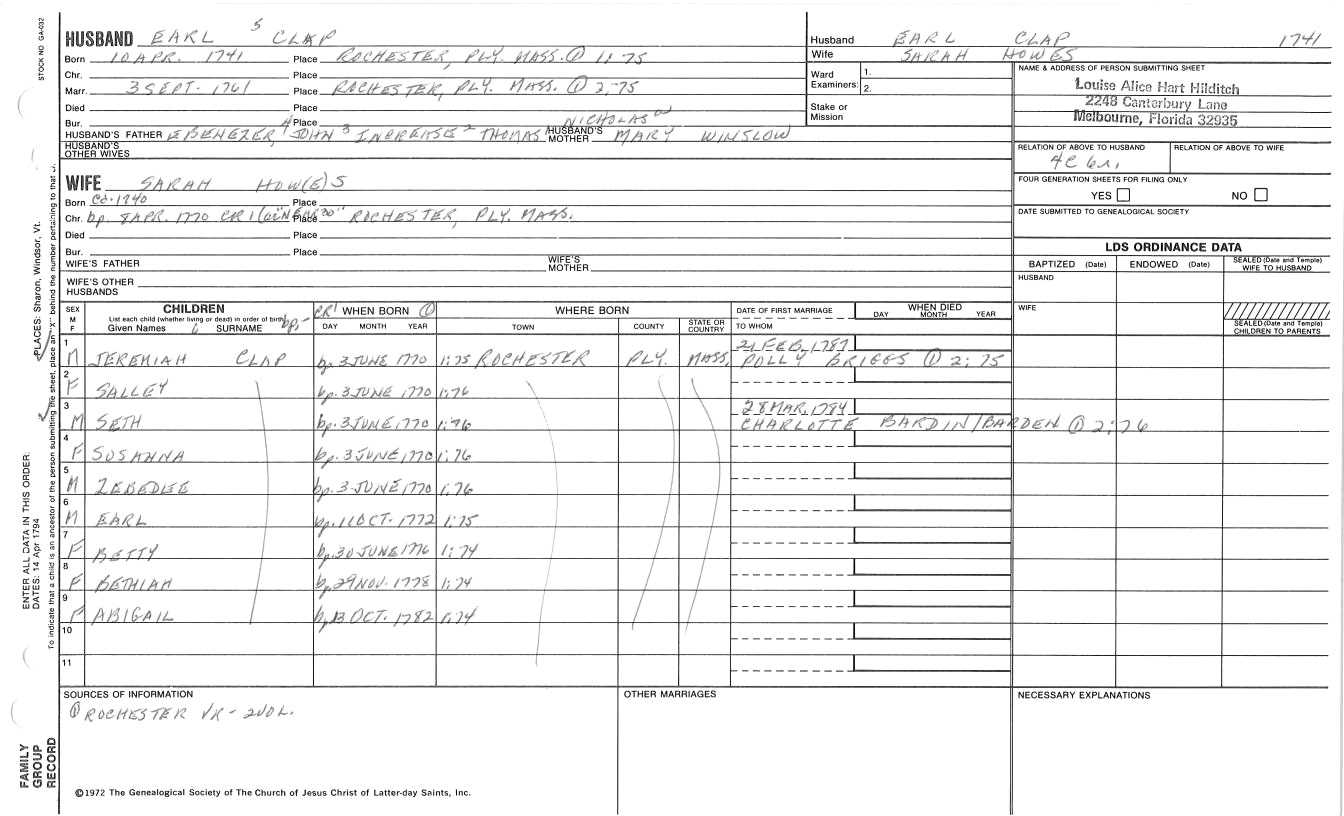 STOCK NO. GA-032
HUSBAND EARL 5 CLAP
Born 10 APR. 1741 Place ROCHESTER, PLY. MASS. ① 1:75
Chr. Place
Marr. 3 SEPT. 1761 Place ROCHESTER, PLY. MASS. ① 2:75
Died Place
Bur. Place NICHOLAS
HUSBAND'S FATHER EBENEZER 4, JOHN 3 INCREASE 2 THOMAS 1 HUSBAND'S MOTHER MARY WINSLOW
HUSBAND'S OTHER WIVES
WIFE SARAH HOW(E)S
Born Ca. 1740 Place
Chr. bp. 8 APR. 1770 CR1 Place ROCHESTER, PLY. MASS.
Died Place
Bur. Place
WIFE'S FATHER WIFE'S MOTHER
WIFE'S OTHER HUSBANDS
Husband EARL CLAP 1741
Wife SARAH HOWES
Ward Examiners: 1. 2.
Stake or Mission
NAME & ADDRESS OF PERSON SUBMITTING SHEET
Louise Alice Hart Hilditch
2248 Canterbury Lane
Melbourne, Florida 32935
RELATION OF ABOVE TO HUSBAND RELATION OF ABOVE TO WIFE
FOUR GENERATION SHEETS FOR FILING ONLY
YES NO
DATE SUBMITTED TO GENEALOGICAL SOCIETY
LDS ORDINANCE DATA
BAPTIZED (Date) ENDOWED (Date) SEALED (Date and Temple) WIFE TO HUSBAND
HUSBAND
WIFE
SEALED (Date and Temple) CHILDREN TO PARENTS
SEX M F CHILDREN CR1 WHEN BORN ① WHERE BORN DATE OF FIRST MARRIAGE WHEN DIED
List each child (whether living or dead) in order of birth bp.
Given Names SURNAME DAY MONTH YEAR TOWN COUNTY STATE OR COUNTRY TO WHOM DAY MONTH YEAR
1 21 FEB. 1787
M JEREMIAH CLAP bp. 3 JUNE 1770 1:75 ROCHESTER PLY. MASS. POLLY BRIGGS ① 2:75
2
F SALLEY bp. 3 JUNE 1770 1:76
3 28 MAR. 1784
M SETH bp. 3 JUNE 1770 1:76 CHARLOTTE BARDIN/BARDEN ① 2:76
4
F SUSANNA bp. 3 JUNE 1770 1:76
5
M ZEBEDEE bp. 3 JUNE 1770 1:76
6
M EARL bp. 11 OCT. 1772 1:75
7
F BETTY bp. 30 JUNE 1776 1:74
8
F BETHIAH bp. 29 NOV. 1778 1:74
9
F ABIGAIL bp. 13 OCT. 1782 1:74
10
11
SOURCES OF INFORMATION OTHER MARRIAGES NECESSARY EXPLANATIONS
① ROCHESTER VR - 2 VOL.
©1972 The Genealogical Society of The Church of Jesus Christ of Latter-day Saints, Inc.
FAMILY GROUP RECORD
ENTER ALL DATA IN THIS ORDER:
DATES: 14 Apr 1794
PLACES: Sharon, Windsor, Vt.
To indicate that a child is an ancestor of the person submitting the sheet, place an "X" behind the number pertaining to that